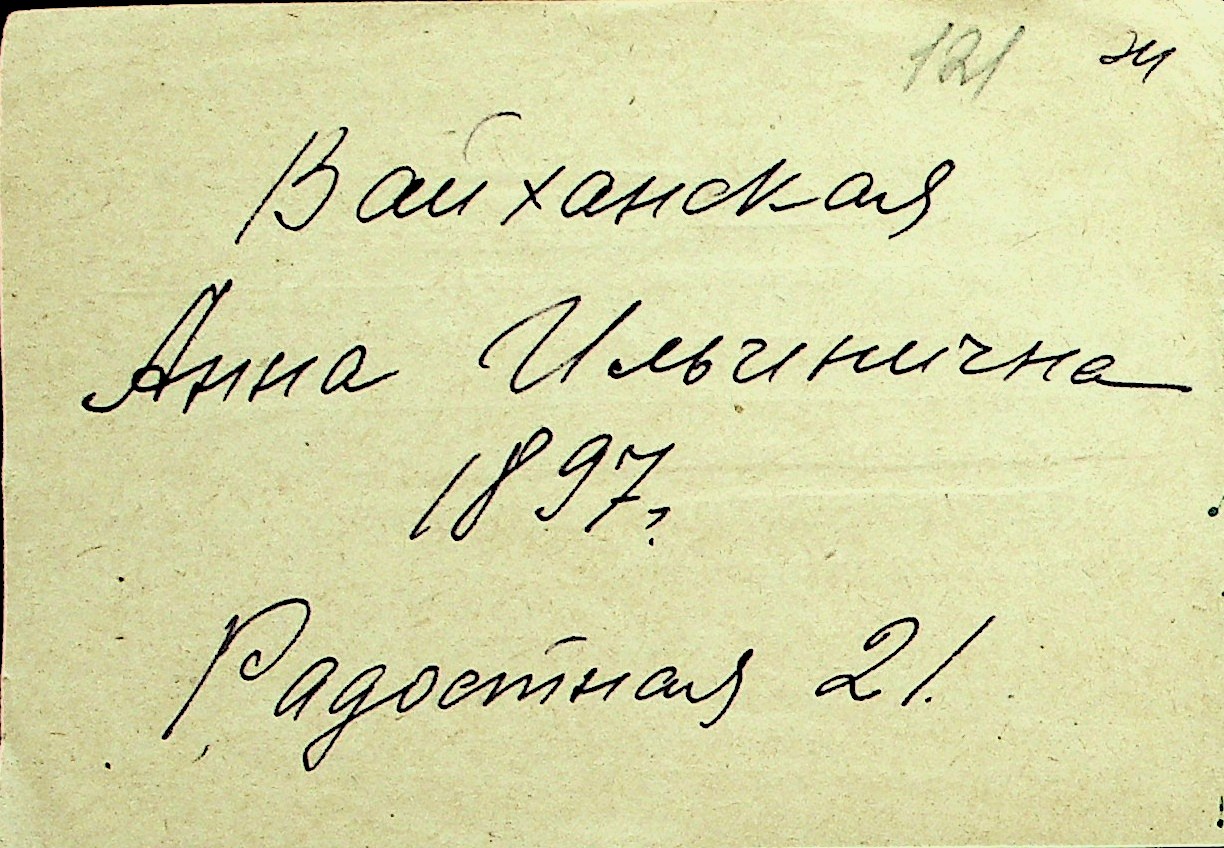 121 ж
Вайханская
Анна Ильинична
1897г.
Радостная 21.